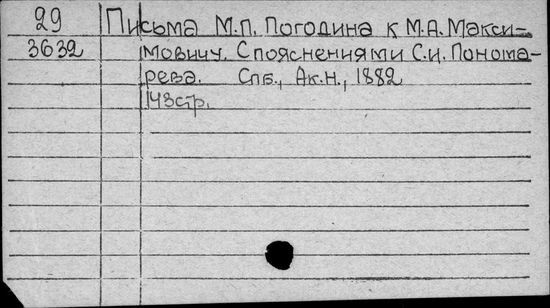 29 Письма М.П. Погодина к М.А. Макси-
3632 мовичу. С пояснениями С.И. Понома-
рева. Спб., Ак.н., 1882
143стр.